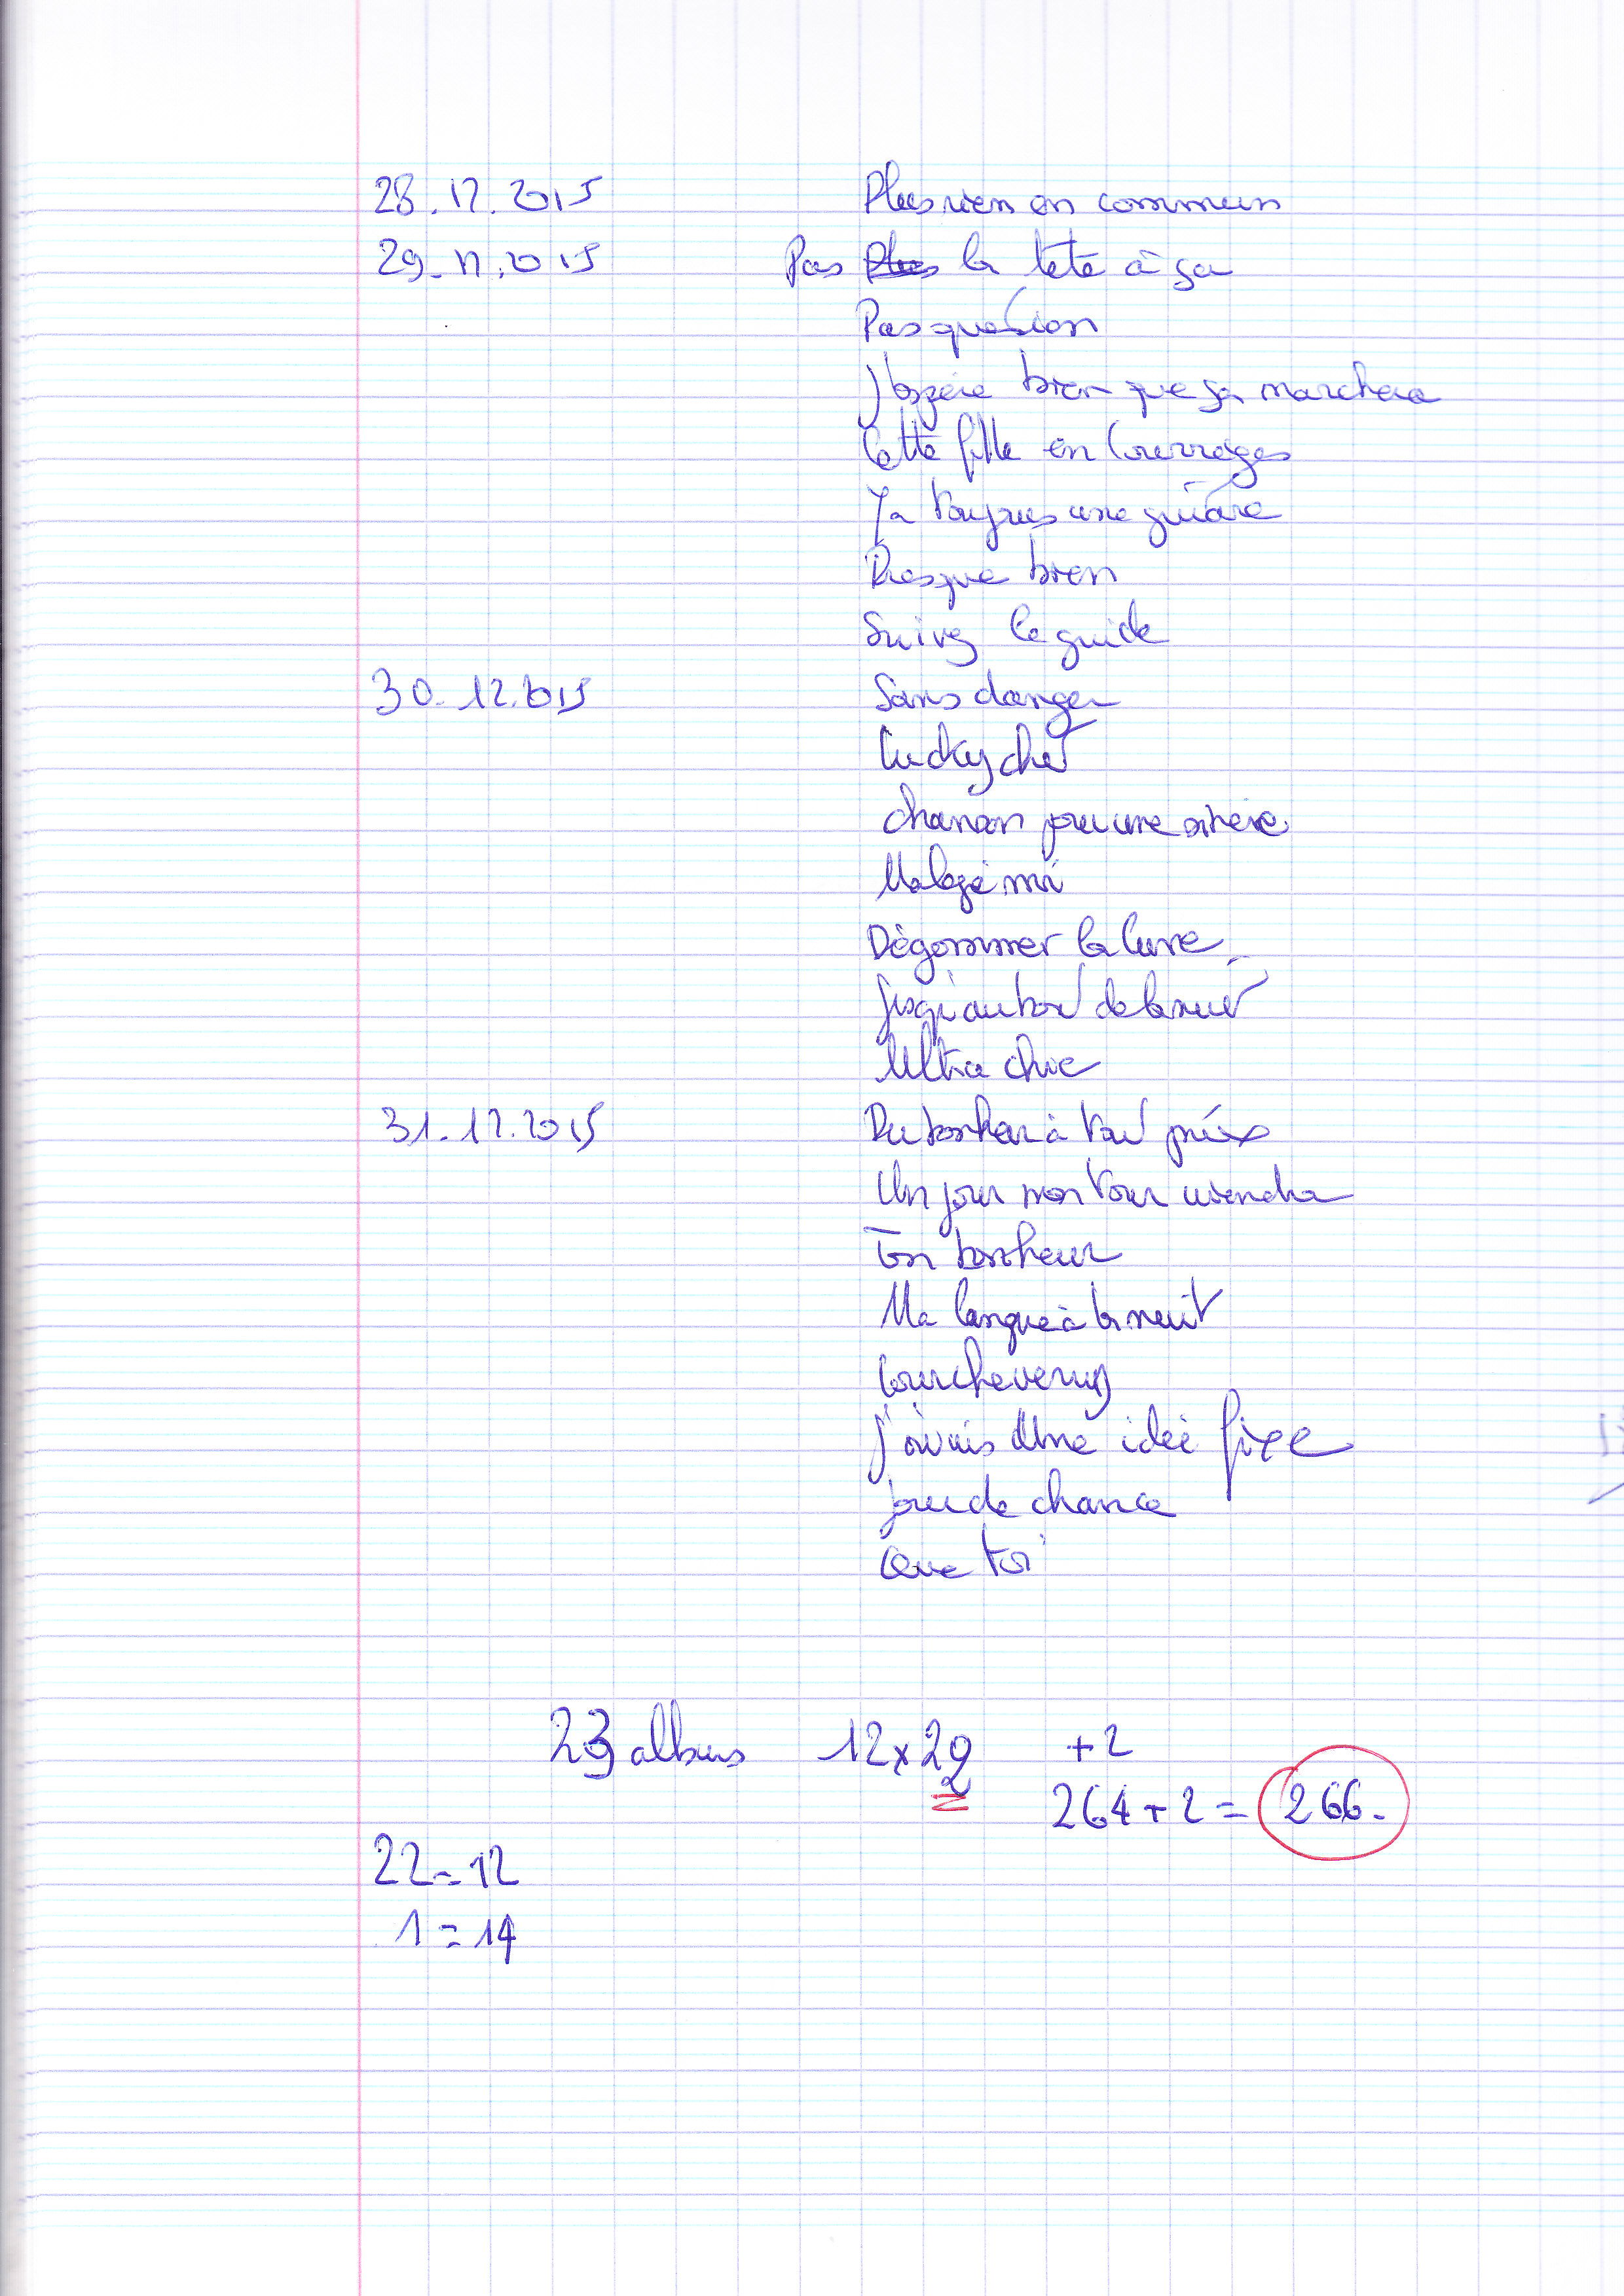 28.12.2015 Plus rien en commun
29.12.2015 Pas Plus la tête à ça
Pas question
J'espère bien que ça marchera
Cette fille en
Ya toujours une guitare
Presque bien
Suivez le guide
30.12.2015 Sans danger
Lucky chef
chanson pour une sirène
Malgré moi
Dégommer la lune
Jusqu'au bout de la nuit
Ultra chic
31.12.2015 Du bonheur à tout prix
Un jour mon tour viendra
Ton bonheur
Ma langue à la nuit
J'avais Une idée fixe
jour de chance
Que toi
23 albums 12x22 +2
264+2= 266.
22=12
1=14